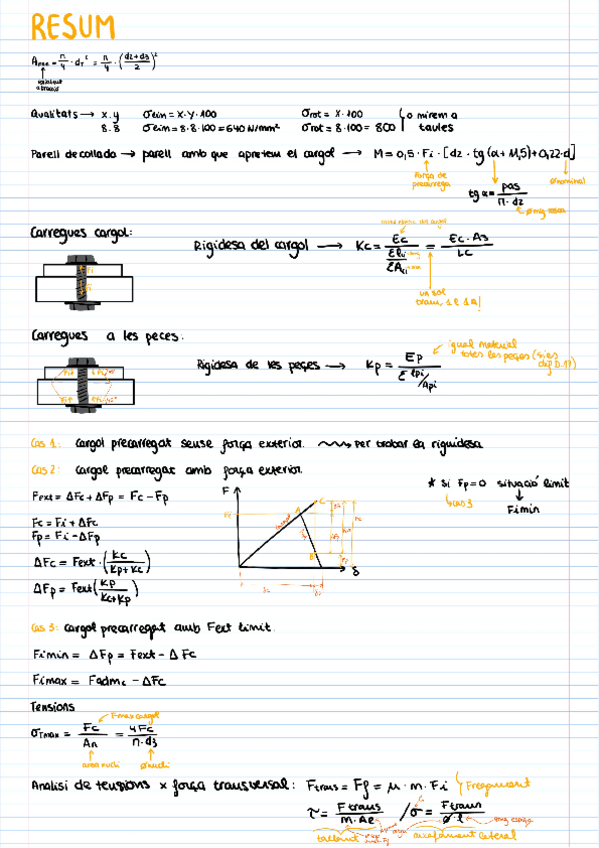 RESUM
A = π/4 · dr² = π/4 · (d2+d3/2)²
Qualitats → x.y σelim = x·y·100 σrot = x·100 o mirem a
8.8 σelim = 8·8·100 = 640 N/mm² σrot = 8·100 = 800 taules
Parell de collada → parell amb que apretem el cargol → M = 0,5 · Fi · [d2 · tg(α+11,5)+0,22·d]
Força de
precarrega
ønominal
tg α = pas/π·d2
Carregues cargol:
Rigidesa del cargol → Kc = Ec / Σli/ΣAci = Ec · As / Lc
un sol
tram, 1 l 1 A!
Carregues a les peces.
Rigidesa de les peçes → Kp = Ep / Σ lpi/Api
igual material
totes les peçes
Cas 1: cargol precarregat sense força exterior. per trobar la riguidesa
Cas 2: cargol precarregat amb força exterior.
* Si Fp=0 situació limit
↳cas 3
Fimin
Fext = ΔFc + ΔFp = Fc - Fp
Fc = Fi + ΔFc
Fp = Fi - ΔFp
ΔFc = Fext · (Kc/Kp+Kc)
ΔFp = Fext (Kp/Kc+Kp)
F
δ
Cas 3: cargol precarregat amb Fext limit.
Fimin = ΔFp = Fext - ΔFc
Fimax = Fadmc - ΔFc
Tensions
Fmax cargol
σTmax = Fc/An = 4Fc/π·d3
area nucli ønucli
Analisi de tensions x força transversal: Ftrans = Ff = μ · m · Fi Fregament
τ = Ftrans/m·Ae / σ = Ftran/ø·l
tallant aixafament lateral